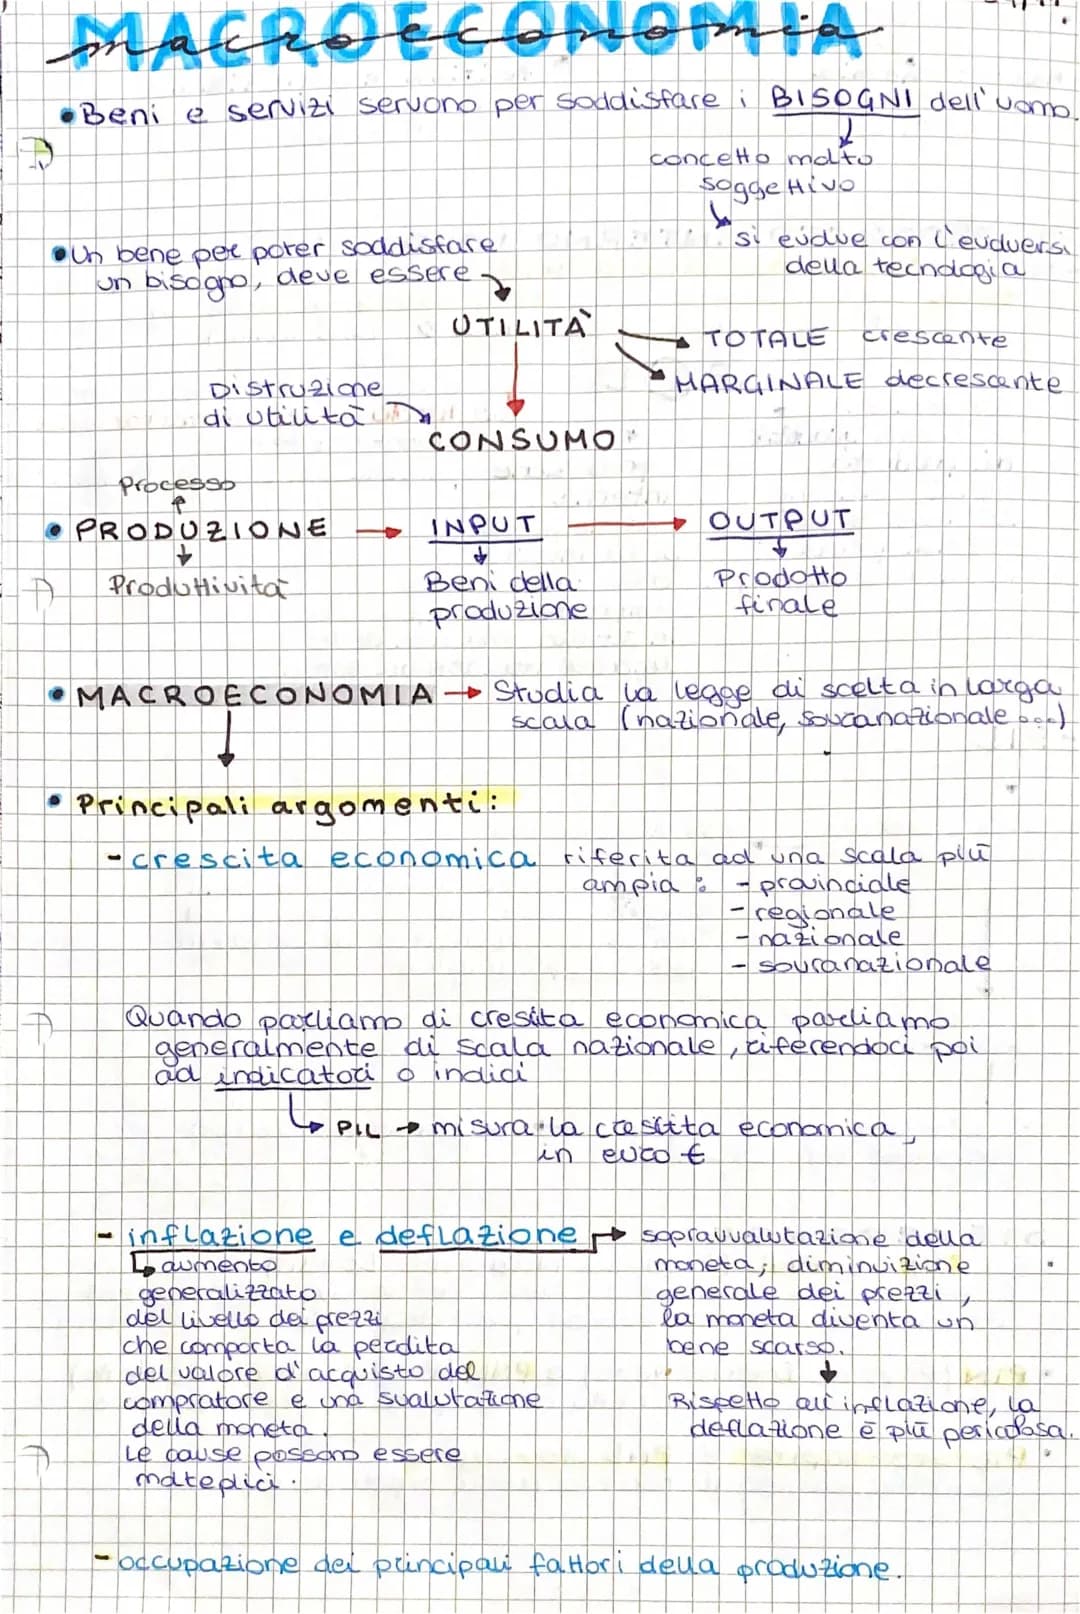 MACROECONOMIA
macroeconomia
•Beni e servizi servono per soddisfare i BISOGNI dell'uomo.
concetto molto
soggettivo
si evolve con l'evolversi
della tecnologia
•Un bene per poter soddisfare
un bisogno, deve essere
UTILITÀ
TOTALE crescente
MARGINALE decrescente
Distruzione
di utilità
CONSUMO
Processo
• PRODUZIONE → INPUT → OUTPUT
Produttività
Beni della
produzione
Prodotto
finale
• MACROECONOMIA → Studia la legge di scelta in larga
scala (nazionale, sovranazionale ...)
• Principali argomenti:
- crescita economica riferita ad una scala più
ampia : - provinciale
- regionale
- nazionale
- sovranazionale
Quando parliamo di crescita economica parliamo
generalmente di scala nazionale, riferendoci poi
ad indicatori o indici
↳ PIL → misura la crescita economica,
in euro €
- inflazione e deflazione → sopravvalutazione della
moneta; diminuizione
generale dei prezzi,
la moneta diventa un
bene scarso.
Rispetto all'inflazione, la
deflazione è più pericolosa.
↳ aumento
generalizzato
del livello dei prezzi
che comporta la perdita
del valore d'acquisto del
compratore e una svalutazione
della moneta.
Le cause possono essere
molteplici.
- occupazione dei principali fattori della produzione.